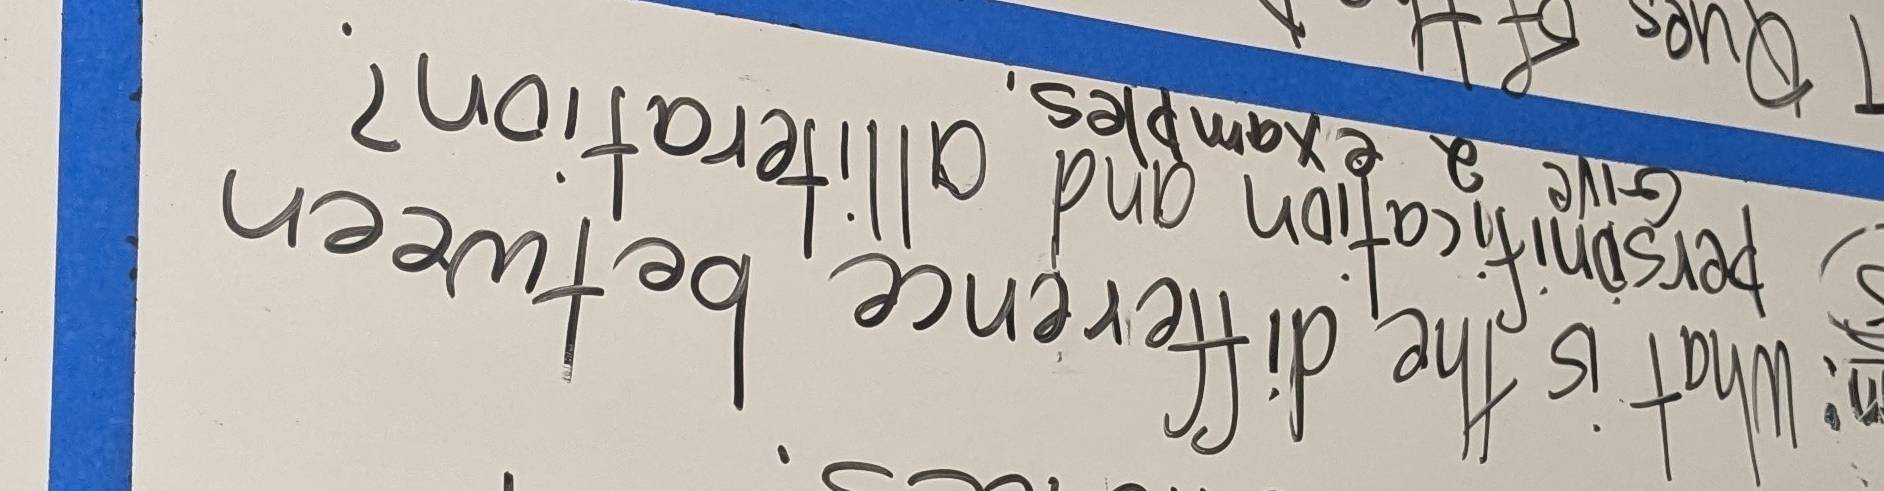 What is the difference between
personification and alliteration?
Give 2 examples.
T Ques of the